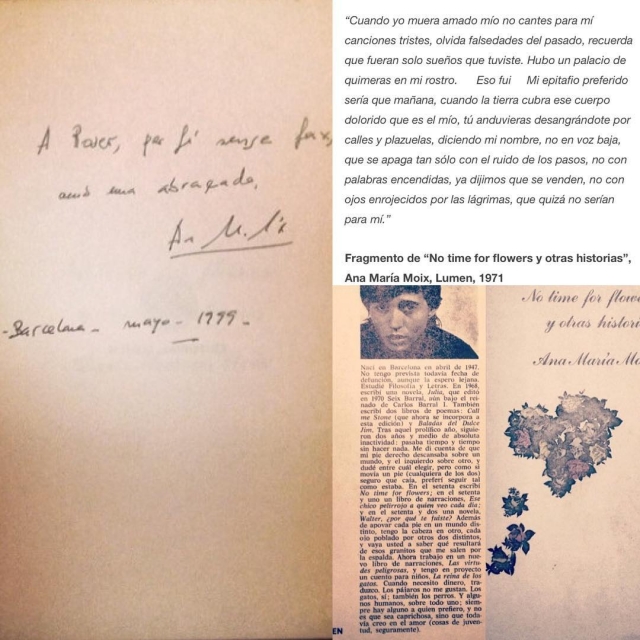 A Roser, per fi sense fax,
amb una abraçada,
Ana M. Moix
- Barcelona - mayo - 1999 -
“Cuando yo muera amado mío no cantes para mí
canciones tristes, olvida falsedades del pasado, recuerda
que fueran solo sueños que tuviste. Hubo un palacio de
quimeras en mi rostro. Eso fui Mi epitafio preferido
sería que mañana, cuando la tierra cubra ese cuerpo
dolorido que es el mío, tú anduvieras desangrándote por
calles y plazuelas, diciendo mi nombre, no en voz baja,
que se apaga tan sólo con el ruido de los pasos, no con
palabras encendidas, ya dijimos que se venden, no con
ojos enrojecidos por las lágrimas, que quizá no serían
para mí.”
Fragmento de “No time for flowers y otras historias”,
Ana María Moix, Lumen, 1971
Nací en Barcelona en abril de 1947.
No tengo prevista todavía fecha de
defunción, aunque la espero lejana.
Estudié Filosofía y Letras. En 1968,
escribí una novela, Julia, que editó
en 1970 Seix Barral, aún bajo el rei-
nado de Carlos Barral I. También
escribí dos libros de poemas: Call
me Stone (que ahora se incorpora a
esta edición) y Baladas del Dulce
Jim. Tras aquel prolífico año, siguie-
ron dos años y medio de absoluta
inactividad: pasaba tiempo y tiempo
sin hacer nada. Me di cuenta de que
mi pie derecho descansaba sobre un
mundo, y el izquierdo sobre otro, y
dudé entre cuál elegir, pero como si
movía un pie (cualquiera de los dos)
seguro que caía, preferí seguir tal
como estaba. En el setenta escribí
No time for flowers; en el setenta
y uno un libro de narraciones, Ese
chico pelirrojo a quien veo cada día;
y en el setenta y dos una novela,
Walter, ¿por qué te fuiste? Además
de apoyar cada pie en un mundo dis-
tinto, tengo la cabeza en otro, cada
ojo poblado por otros dos distintos,
y vaya usted a saber qué resultará
de esos granitos que me salen por
la espalda. Ahora trabajo en un nue-
vo libro de narraciones, Las virtu-
des peligrosas, y tengo en proyecto
un cuento para niños, La reina de los
gatos. Cuando necesito dinero, tra-
duzco. Los pájaros no me gustan. Los
gatos, sí; también los perros. Y algu-
nos humanos, sobre todo uno; siem-
pre hay alguno a quien prefiero, y no
es que sea caprichosa, sino que toda-
vía creo en el amor (cosas de juven-
tud, seguramente).
EN
No time for flowe
y otras histori
Ana María Mo